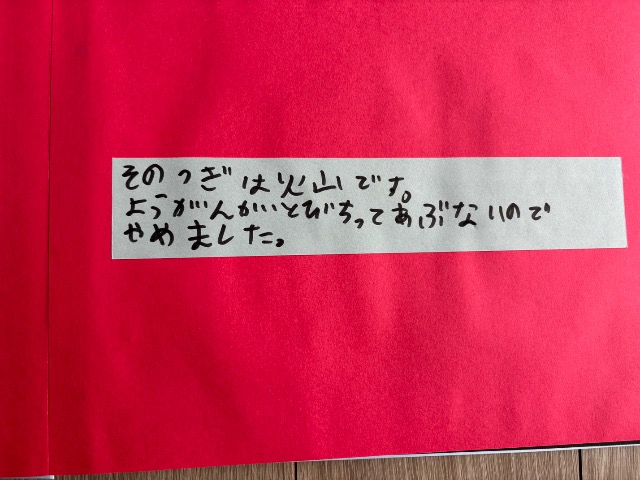 そのつぎは火山です。
ようがんがいとびちってあぶないので
やめました。